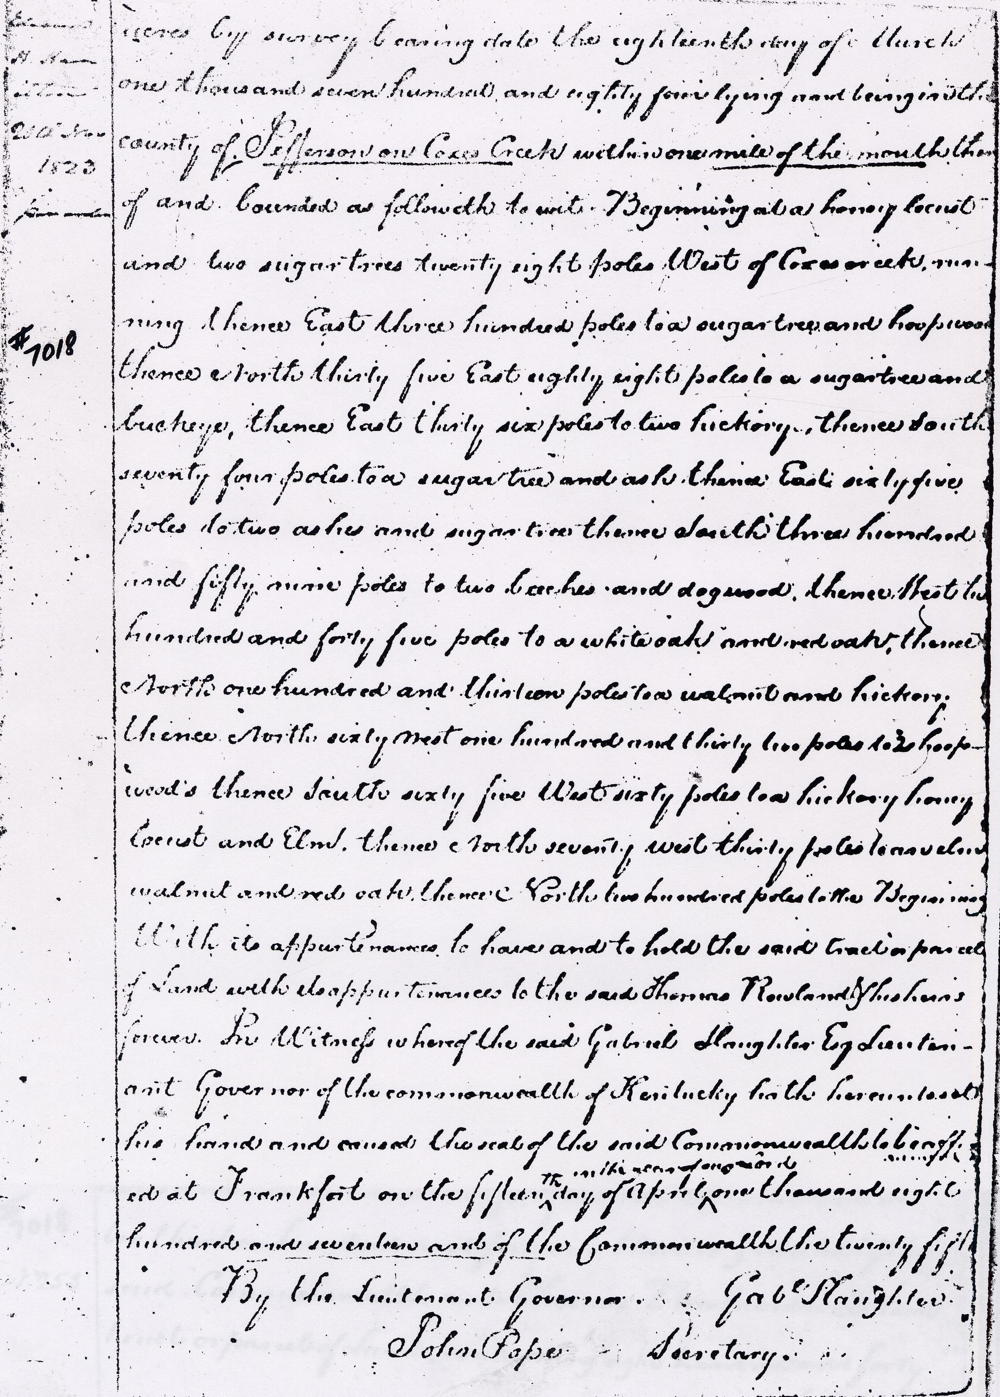 H.
1823
#7018
acres by survey bearing date the eighteenth day of March
one thousand seven hundred and eighty four lying and being in the
county of Jefferson on Coxes Creek within one mile of the mouth ther
of and bounded as followeth to wit. Beginning at a honey locust
and two sugar trees twenty eight poles West of Coxes creek, run-
ning thence East three hundred poles to a sugar tree and hoopwood
thence North thirty five East eighty eight poles to a sugar tree and
buckeye, thence East thirty six poles to two hickory, thence South
seventy four poles to a sugar tree and ash thence East sixty five
poles to two ashes and sugar tree thence South three hundred
and fifty nine poles to two beeches and dogwood, thence West
hundred and forty five poles to a white oak and red oak, thence
North one hundred and thirteen poles to a walnut and hickory
thence North sixty west one hundred and thirty two poles to 2 hoop-
wood's thence South sixty five West sixty poles to a hickory honey
locust and Elm. thence North seventy west thirty poles to an elm
walnut and red oak, thence North two hundred poles to the Begining
With its appurtenances to have and to hold the said tract or parcel
of Land with its appurtenances to the said Thomas Rowland & his heirs
forever. In Witness whereof the said Gabriel Slaughter Esq Lieuten-
ant Governor of the commonwealth of Kentucky hath hereunto set
his hand and caused the seal of the said Commonwealth to be aff
in the year of our lord
ed at Frankfort on the fifteenth day of April one thousand eight
hundred and seventeen and of the Commonwealth the twenty fifth
By the Lieutenant Governor. Gabl Slaughter
John Pope Secretary.